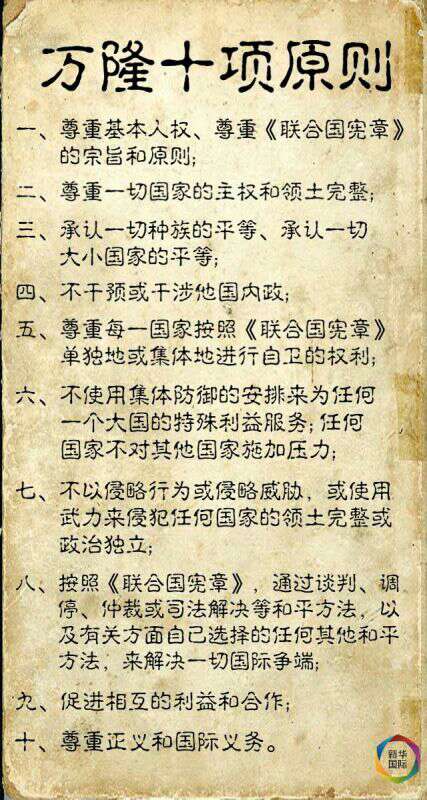 万隆十项原则
一、尊重基本人权、尊重《联合国宪章》
的宗旨和原则;
二、尊重一切国家的主权和领土完整;
三、承认一切种族的平等、承认一切
大小国家的平等;
四、不干预或干涉他国内政;
五、尊重每一国家按照《联合国宪章》
单独地或集体地进行自卫的权利;
六、不使用集体防御的安排来为任何
一个大国的特殊利益服务;任何
国家不对其他国家施加压力;
七、不以侵略行为或侵略威胁，或使用
武力来侵犯任何国家的领土完整或
政治独立;
八、按照《联合国宪章》，通过谈判、调
停、仲裁或司法解决等和平方法，以
及有关方面自己选择的任何其他和平
方法，来解决一切国际争端;
九、促进相互的利益和合作;
十、尊重正义和国际义务。
新华
国际